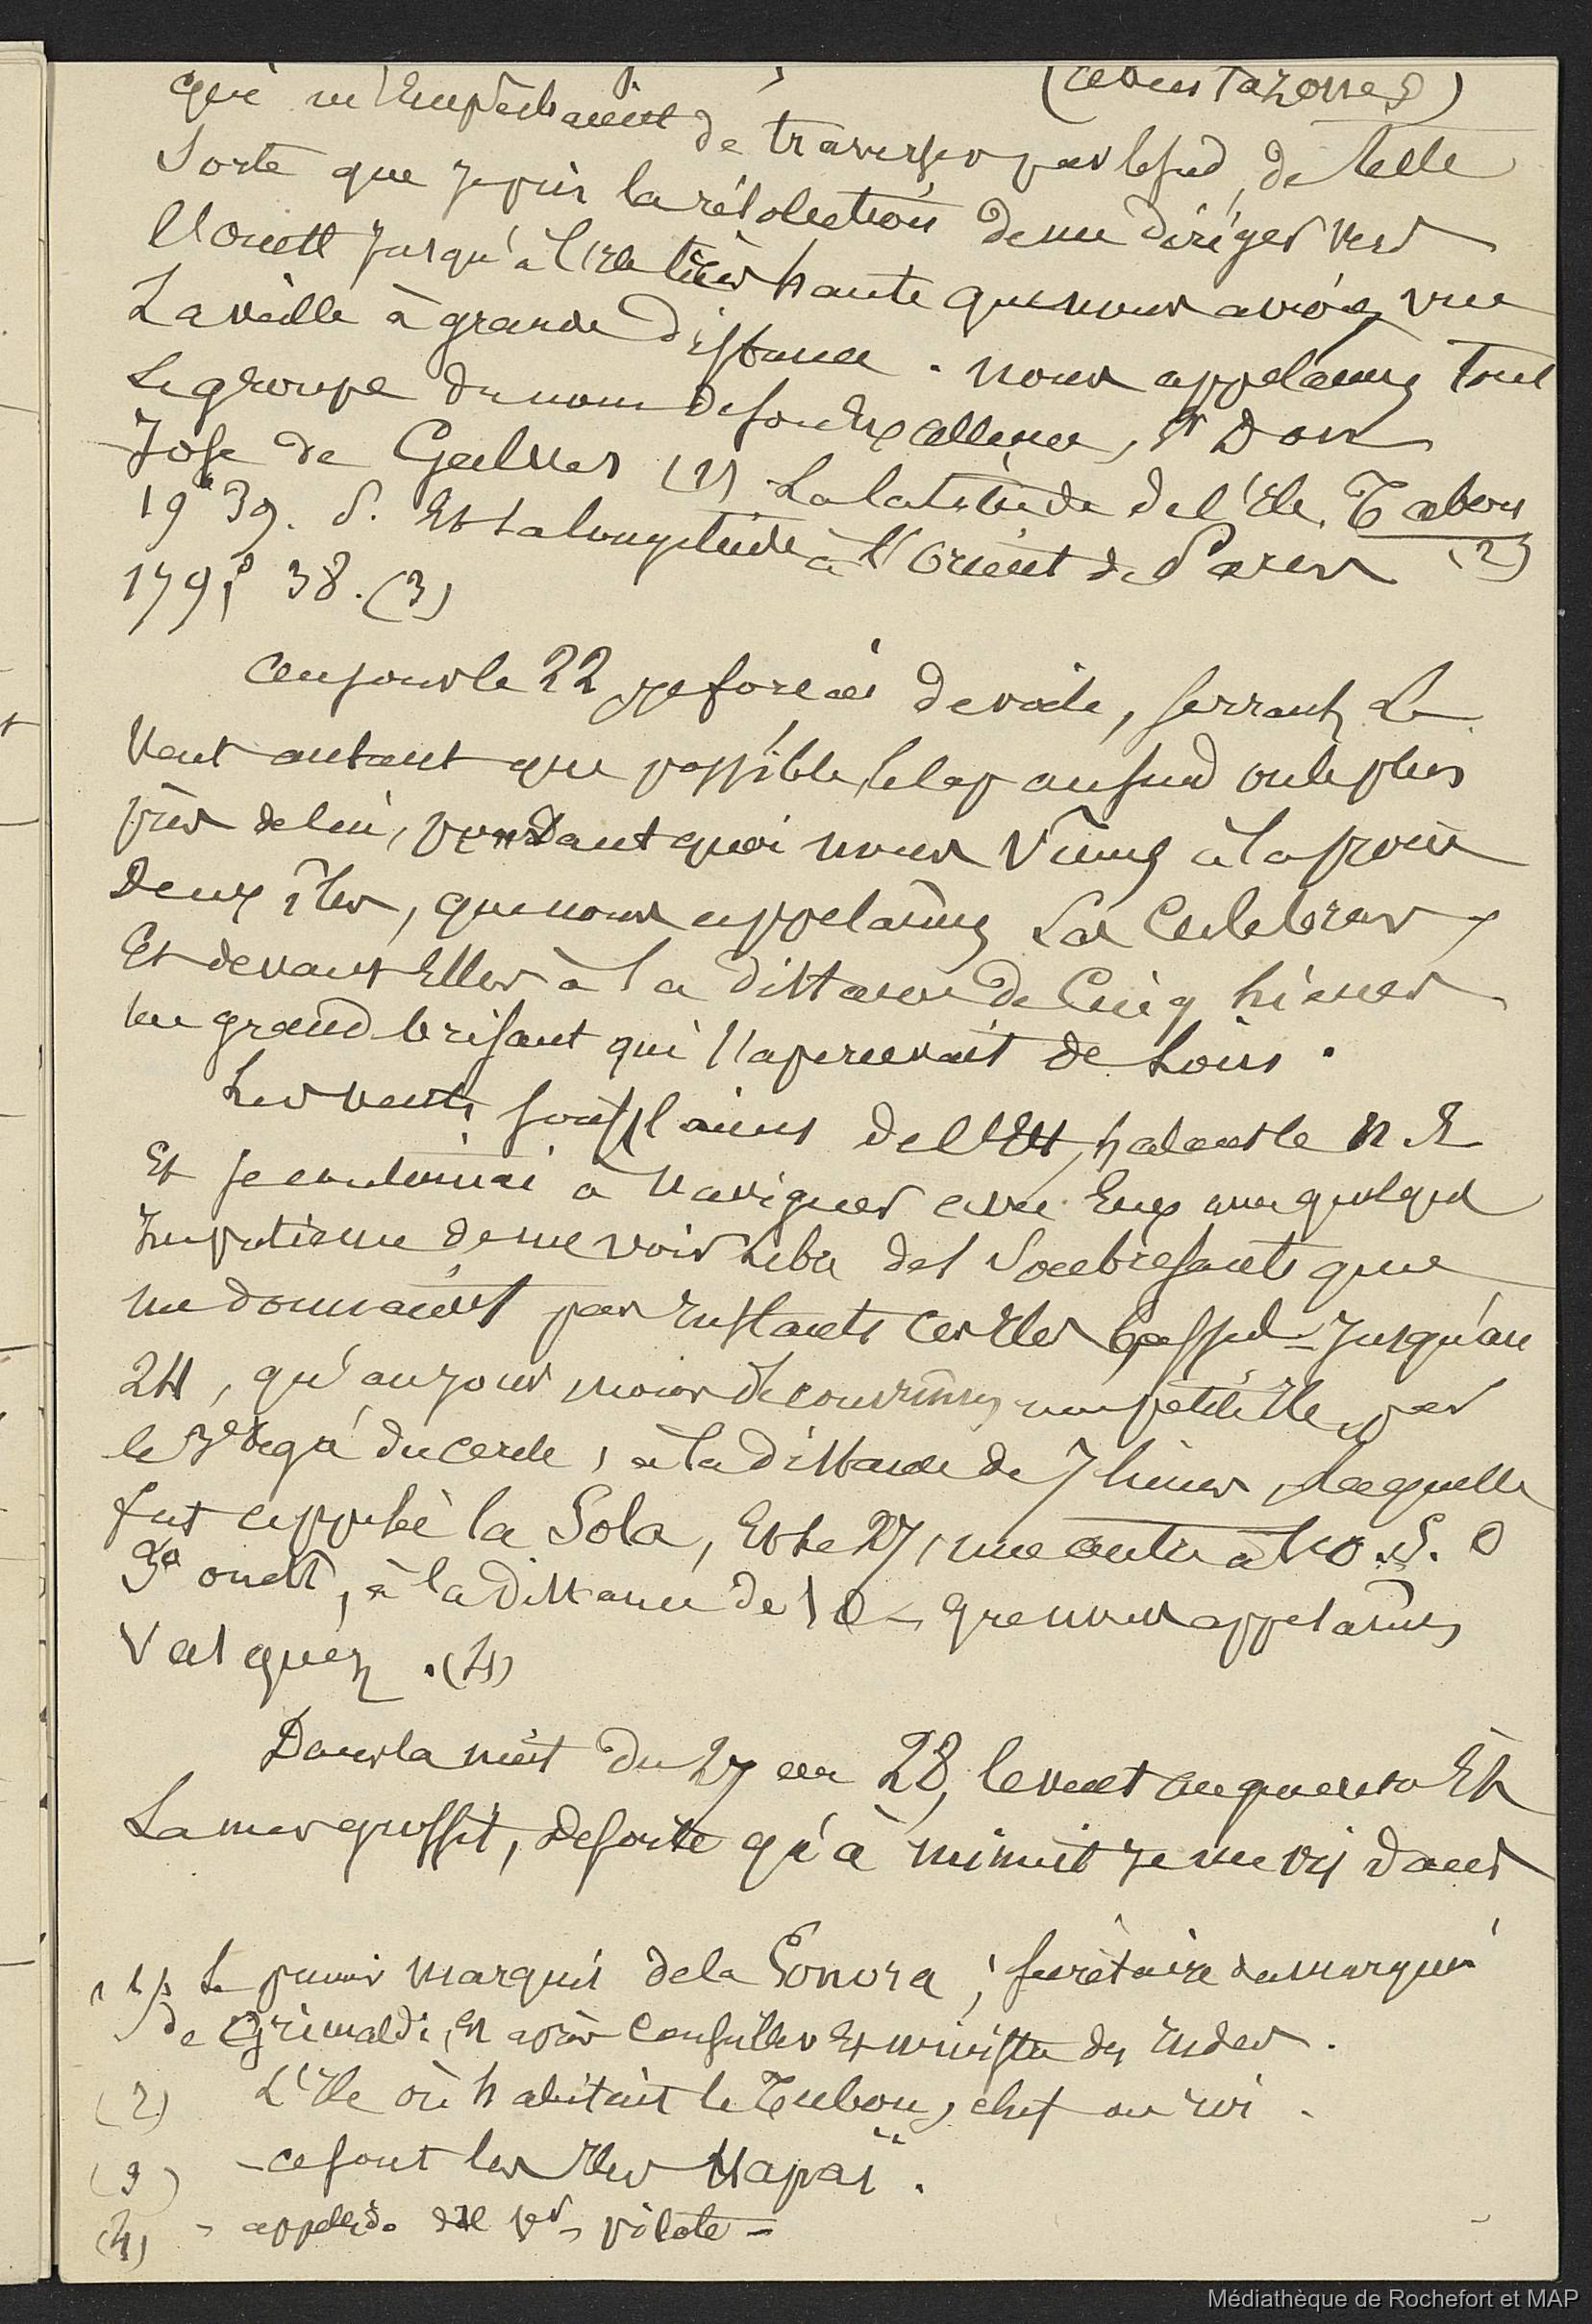 qui m'Empêchaient de traverser par le sud, de telle
Sorte que je pris la résolution de me diriger vers
l'ouest jusqu'à l'Ile très haute que nous avions vue
La veille à grande distance. nous appelâmes tout
Le groupe du nom de son Excellence, Sr Don
José de Galves (1) La latitude de l'Ile Tabou (2)
19° 39. S. Et sa longitude à l'Orient de Paris
179° 38. (3)
Ce jour le 22 je forçai de voile, serrant Le
Vent autant que possible, le cap au sud ou le plus
près de lui, pendant quoi nous vîmes à la proue
Deux îles, que nous appelâmes Las Culebras,
Et devant Elles à la distance de Cinq lieues
un grand brisant qui s'apercevait de Loin.
Les vents soufflaient de l'Est, halant le N. E
Et je continuai à naviguer avec Eux avec quelque
Impatience de me voir Libre des Soubresauts que
me donnaient par Instants ces Iles basses - Jusqu'au
24, qu'au jour nous découvrîmes une petite Ile, par
le 3e degré du cercle, à la distance de 7 lieues, Laquelle
fut appelée la Sola, Et le 27, une autre à l'O. S. O
ouest, à la distance de 10 - que nous appelâmes
Vasquez. (4)
Dans la nuit du 27 au 28, le vent augmenta Et
La mer grossit, de sorte qu'à minuit je me vis dans
(1) Le premier Marquis de la Sonora, secrétaire du marquis
de Grimaldi, et après Conseiller Et ministre des Indes.
(2) L'Ile où habitait le Tubou, chef ou roi.
(3) - ce sont les Iles Hapaï.
(4) - appellido del 1er pilote -
Médiathèque de Rochefort et MAP